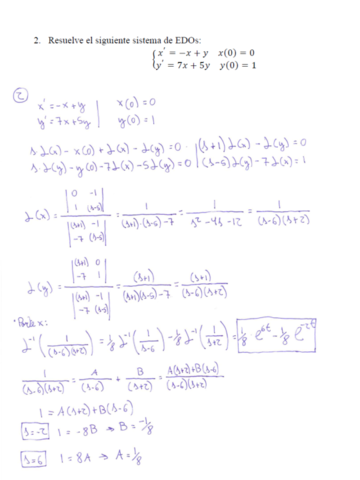 2. Resuelve el siguiente sistema de EDOs:
{x' = −x + y   x(0) = 0
{y' = 7x + 5y   y(0) = 1
②
x' = -x+y | x(0)=0
y' = 7x+5y | y(0)=1
s·L(x) - x(0) + L(x) - L(y) = 0 | (s+1) L(x) - L(y) = 0
s·L(y) - y(0) - 7L(x) - 5L(y) = 0 | (s-5) L(y) - 7L(x) = 1
L(x) = |0 -1; 1 (s-5)| / |(s+1) -1; -7 (s-5)| = 1/((s+1)·(s-5)-7) = 1/(s²-4s-12) = 1/((s-6)(s+2))
L(y) = |(s+1) 0; -7 1| / |(s+1) -1; -7 (s-5)| = (s+1)/((s+1)(s-5)-7) = (s+1)/((s-6)(s+2))
• Para x:
L⁻¹(1/((s-6)(s+2))) = 1/8 L⁻¹(1/(s-6)) - 1/8 L⁻¹(1/(s+2)) = 1/8 e^{6t} - 1/8 e^{-2t}
1/((s-6)(s+2)) = A/(s-6) + B/(s+2) = (A(s+2)+B(s-6))/((s-6)(s+2))
1 = A(s+2)+B(s-6)
s=-2 1 = -8B → B = -1/8
s=6 1 = 8A → A = 1/8